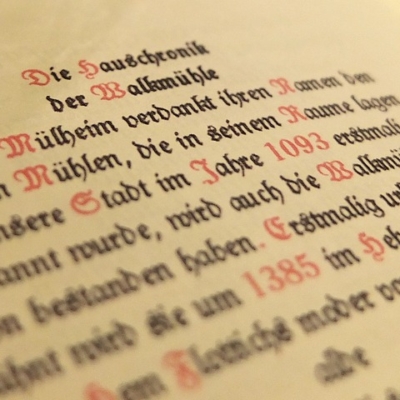 Die Hauschronik
der Walkmühle
Mülheim verdankt ihren Namen den
Mühlen, die in seinem Raume lagen
Stadt im Jahre 1093 erstmali
wurde, wird auch die Walkmü
bestanden haben. Erstmalig
wird sie um 1385 im
moder